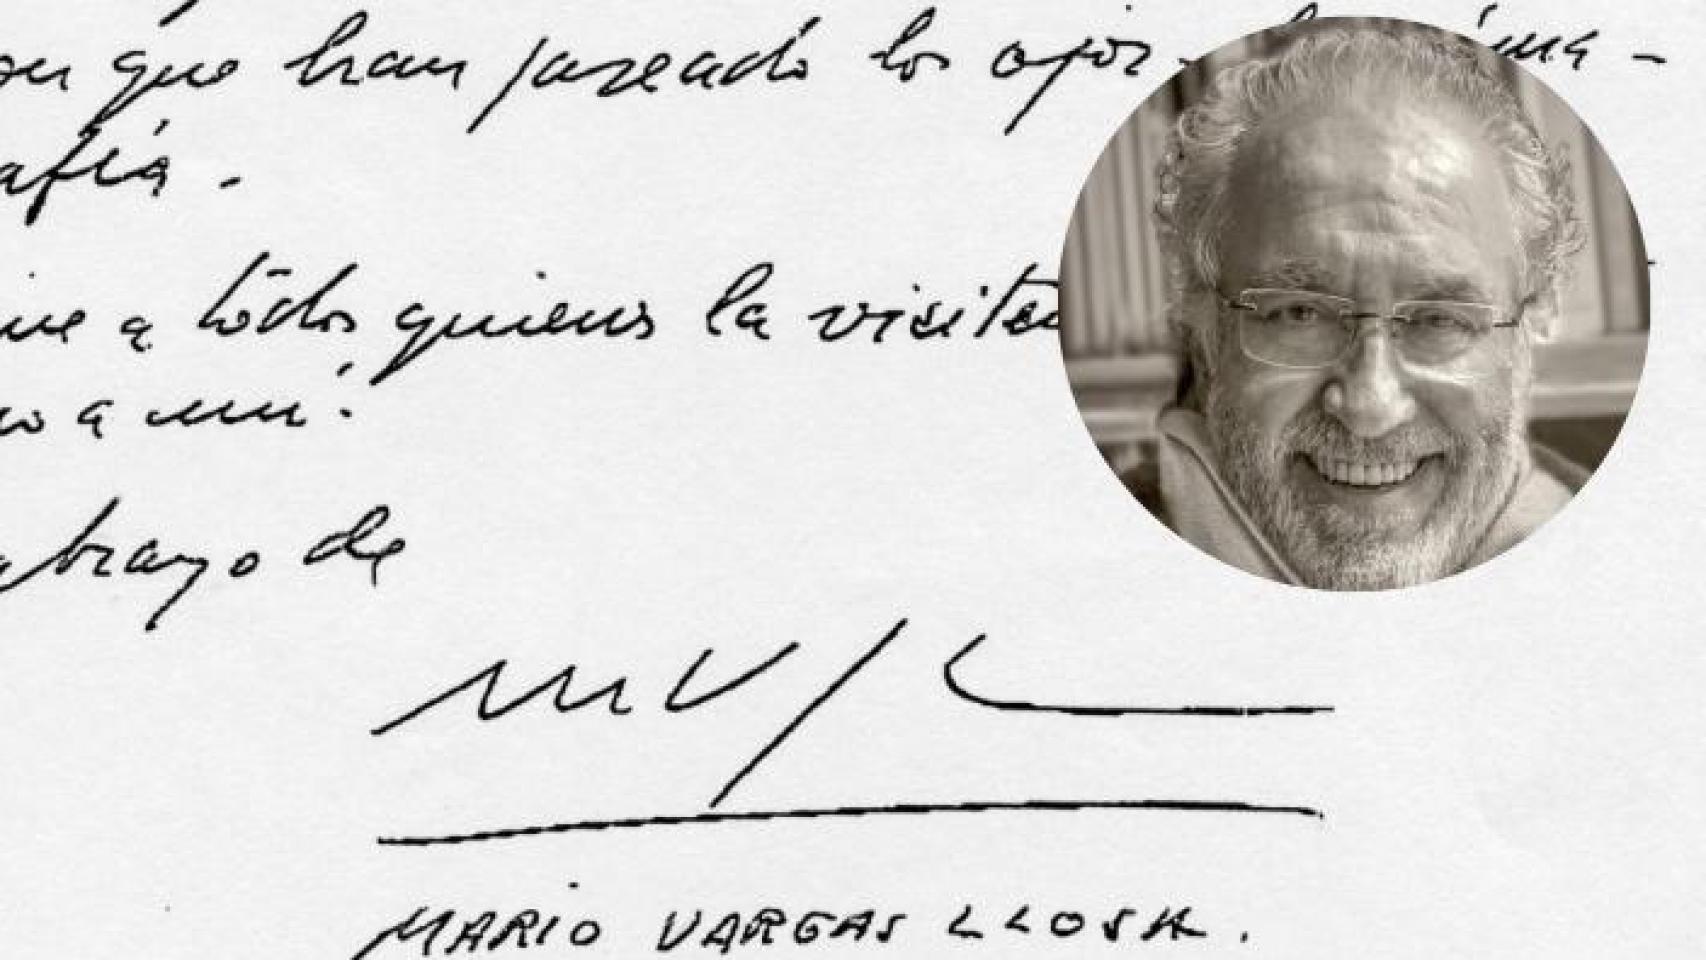 que han paseado los ojos
afía.
a todos quienes la visiten
a mí.
abrazo de
MVLL
MARIO VARGAS LLOSA.